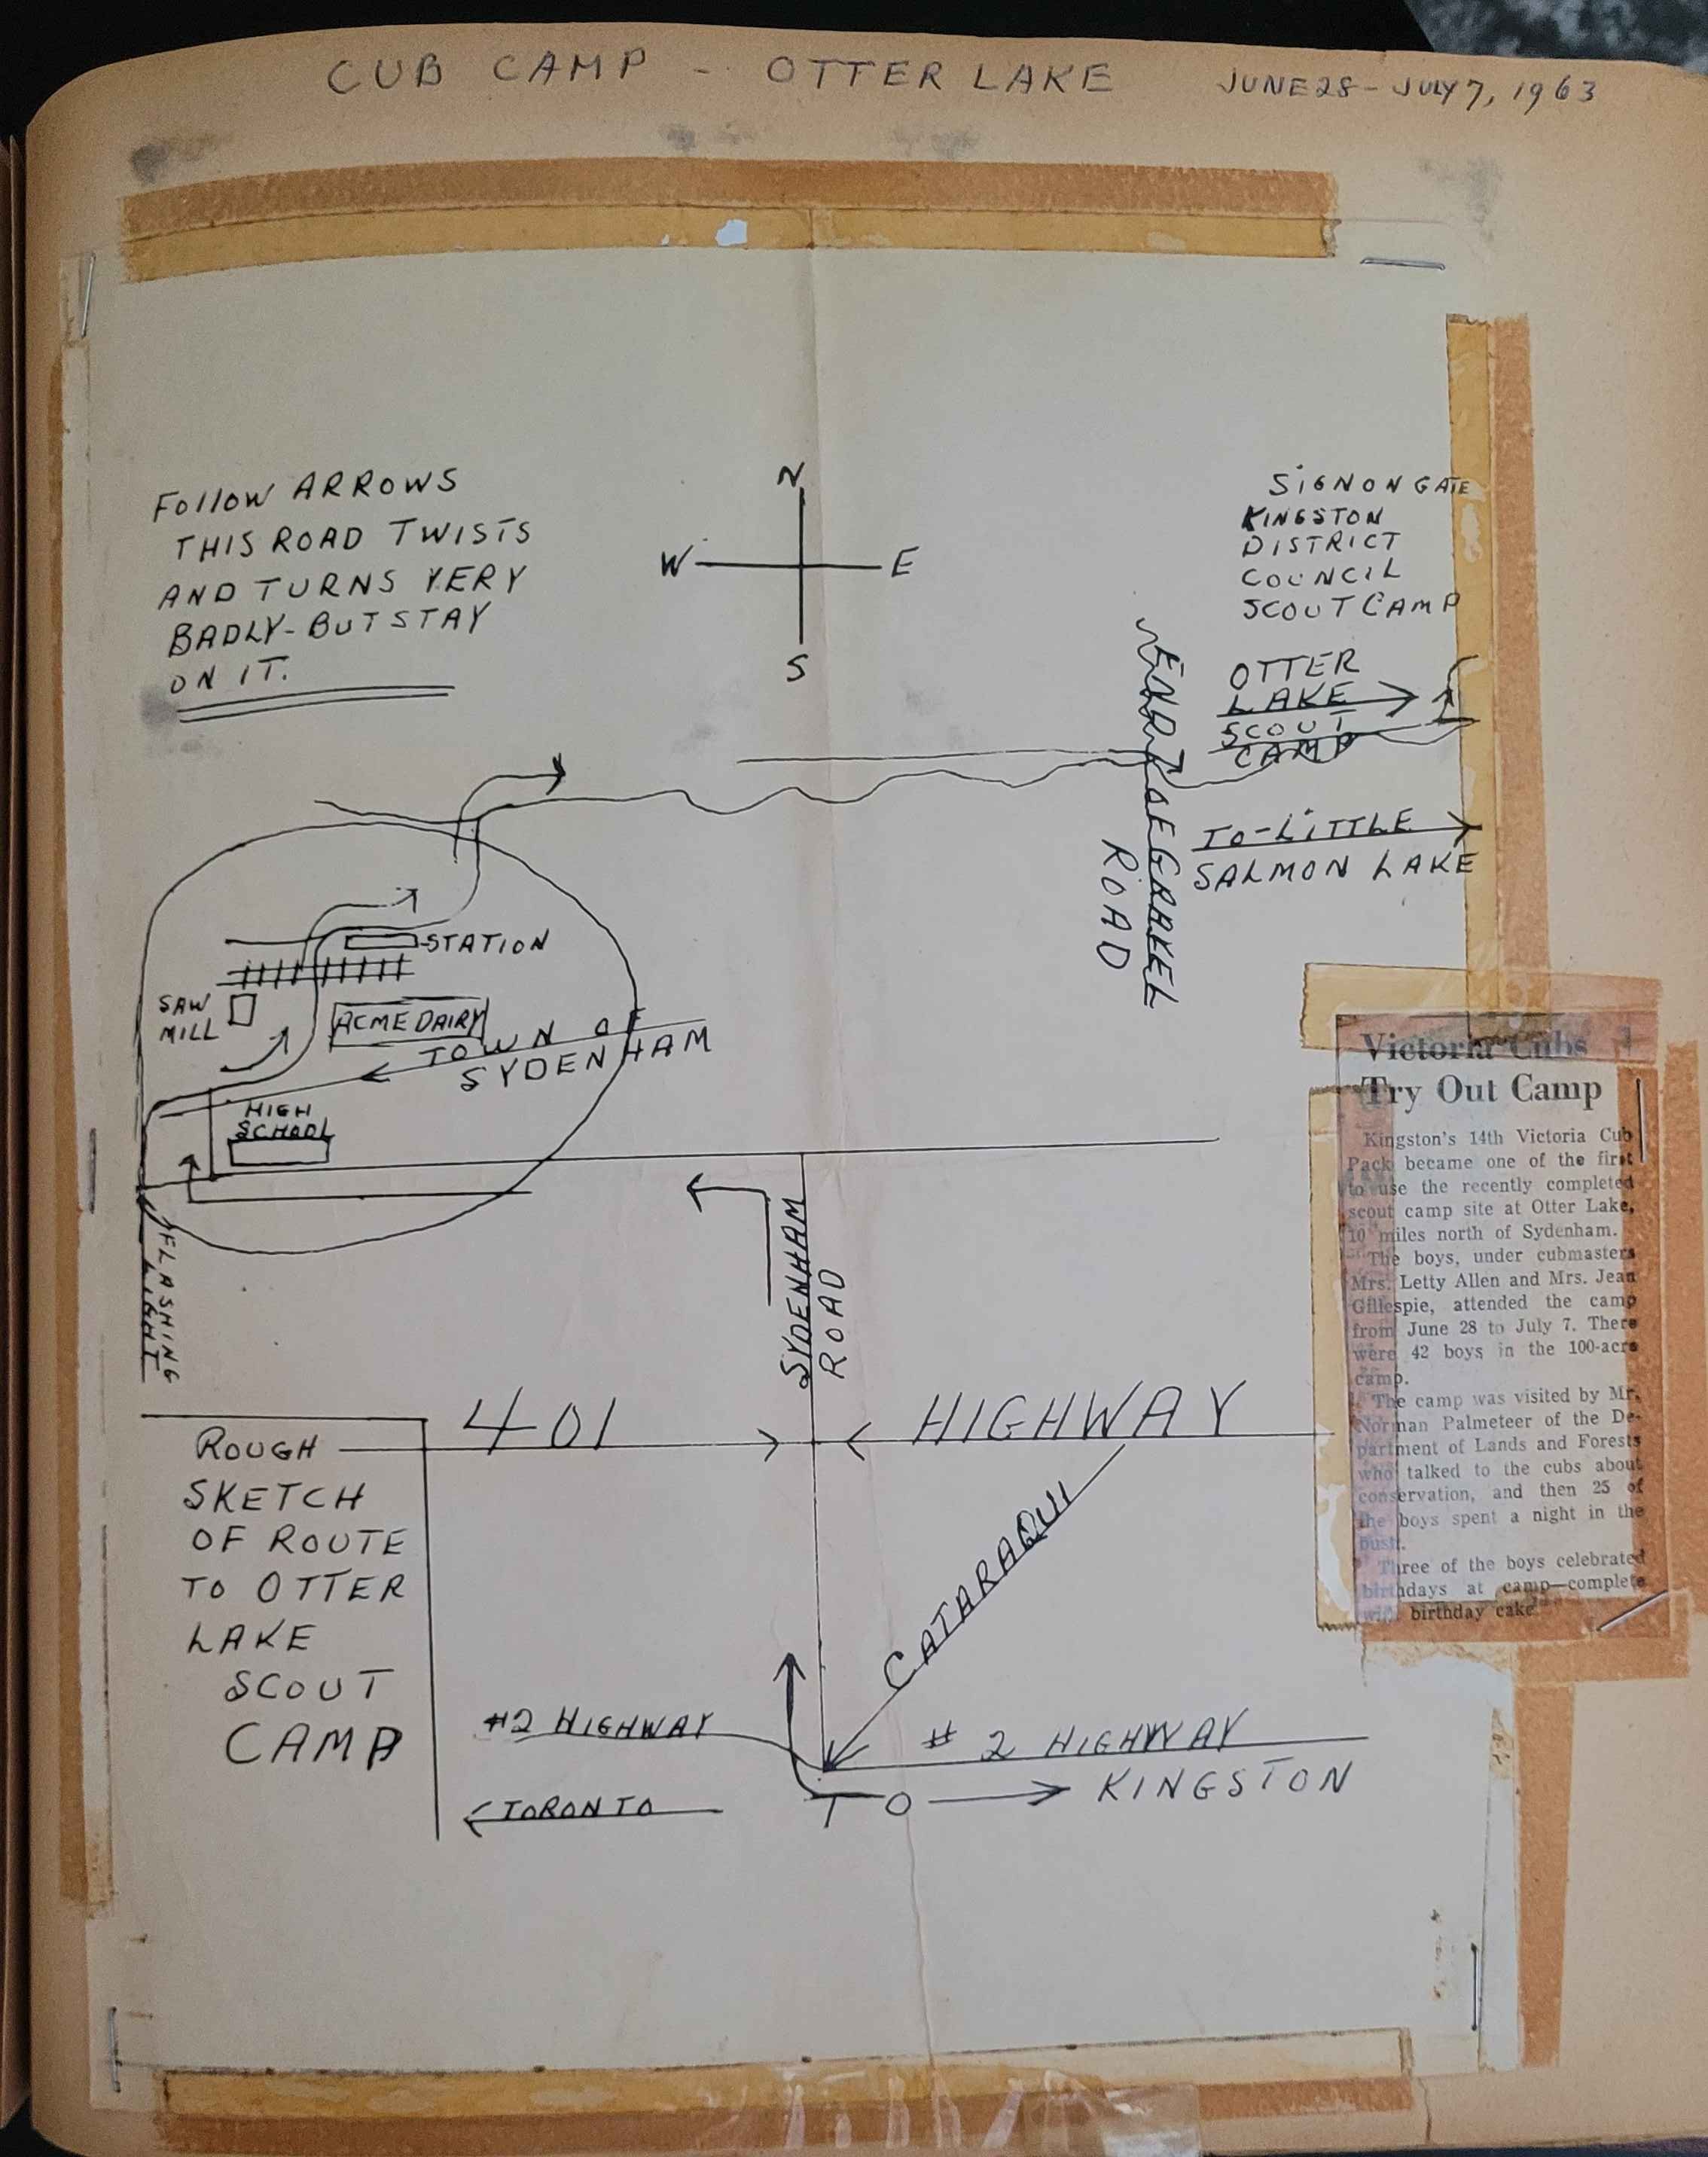 CUB CAMP - OTTER LAKE JUNE 28 - JULY 7, 1963
FOllOW ARROWS
THIS ROAD TWISTS
AND TURNS VERY
BADLY - BUT STAY
ON IT.
N
W E
S
SIGN ON GATE
KINGSTON
DISTRICT
COUNCIL
SCOUT CAMP
OTTER
LAKE
SCOUT
CAMP
END OF GRAVEL
ROAD
TO - LITTLE
SALMON LAKE
STATION
SAW
MILL
ACME DAIRY
TOWN OF
SYDENHAM
HIGH
SCHOOL
FLASHING
LIGHT
SYDENHAM
ROAD
401 HIGHWAY
ROUGH
SKETCH
OF ROUTE
TO OTTER
LAKE
SCOUT
CAMP
CATARAQUI
#2 HIGHWAY
# 2 HIGHWAY
TORONTO
TO KINGSTON
Victoria Cubs
Try Out Camp
Kingston's 14th Victoria Cub
Pack became one of the first
to use the recently completed
scout camp site at Otter Lake,
10 miles north of Sydenham.
The boys, under cubmasters
Mrs. Letty Allen and Mrs. Jean
Gillespie, attended the camp
from June 28 to July 7. There
were 42 boys in the 100-acre
camp.
The camp was visited by Mr.
Norman Palmeteer of the De-
partment of Lands and Forests
who talked to the cubs about
conservation, and then 25 of
the boys spent a night in the
bush.
Three of the boys celebrated
birthdays at camp—complete
with birthday cake.